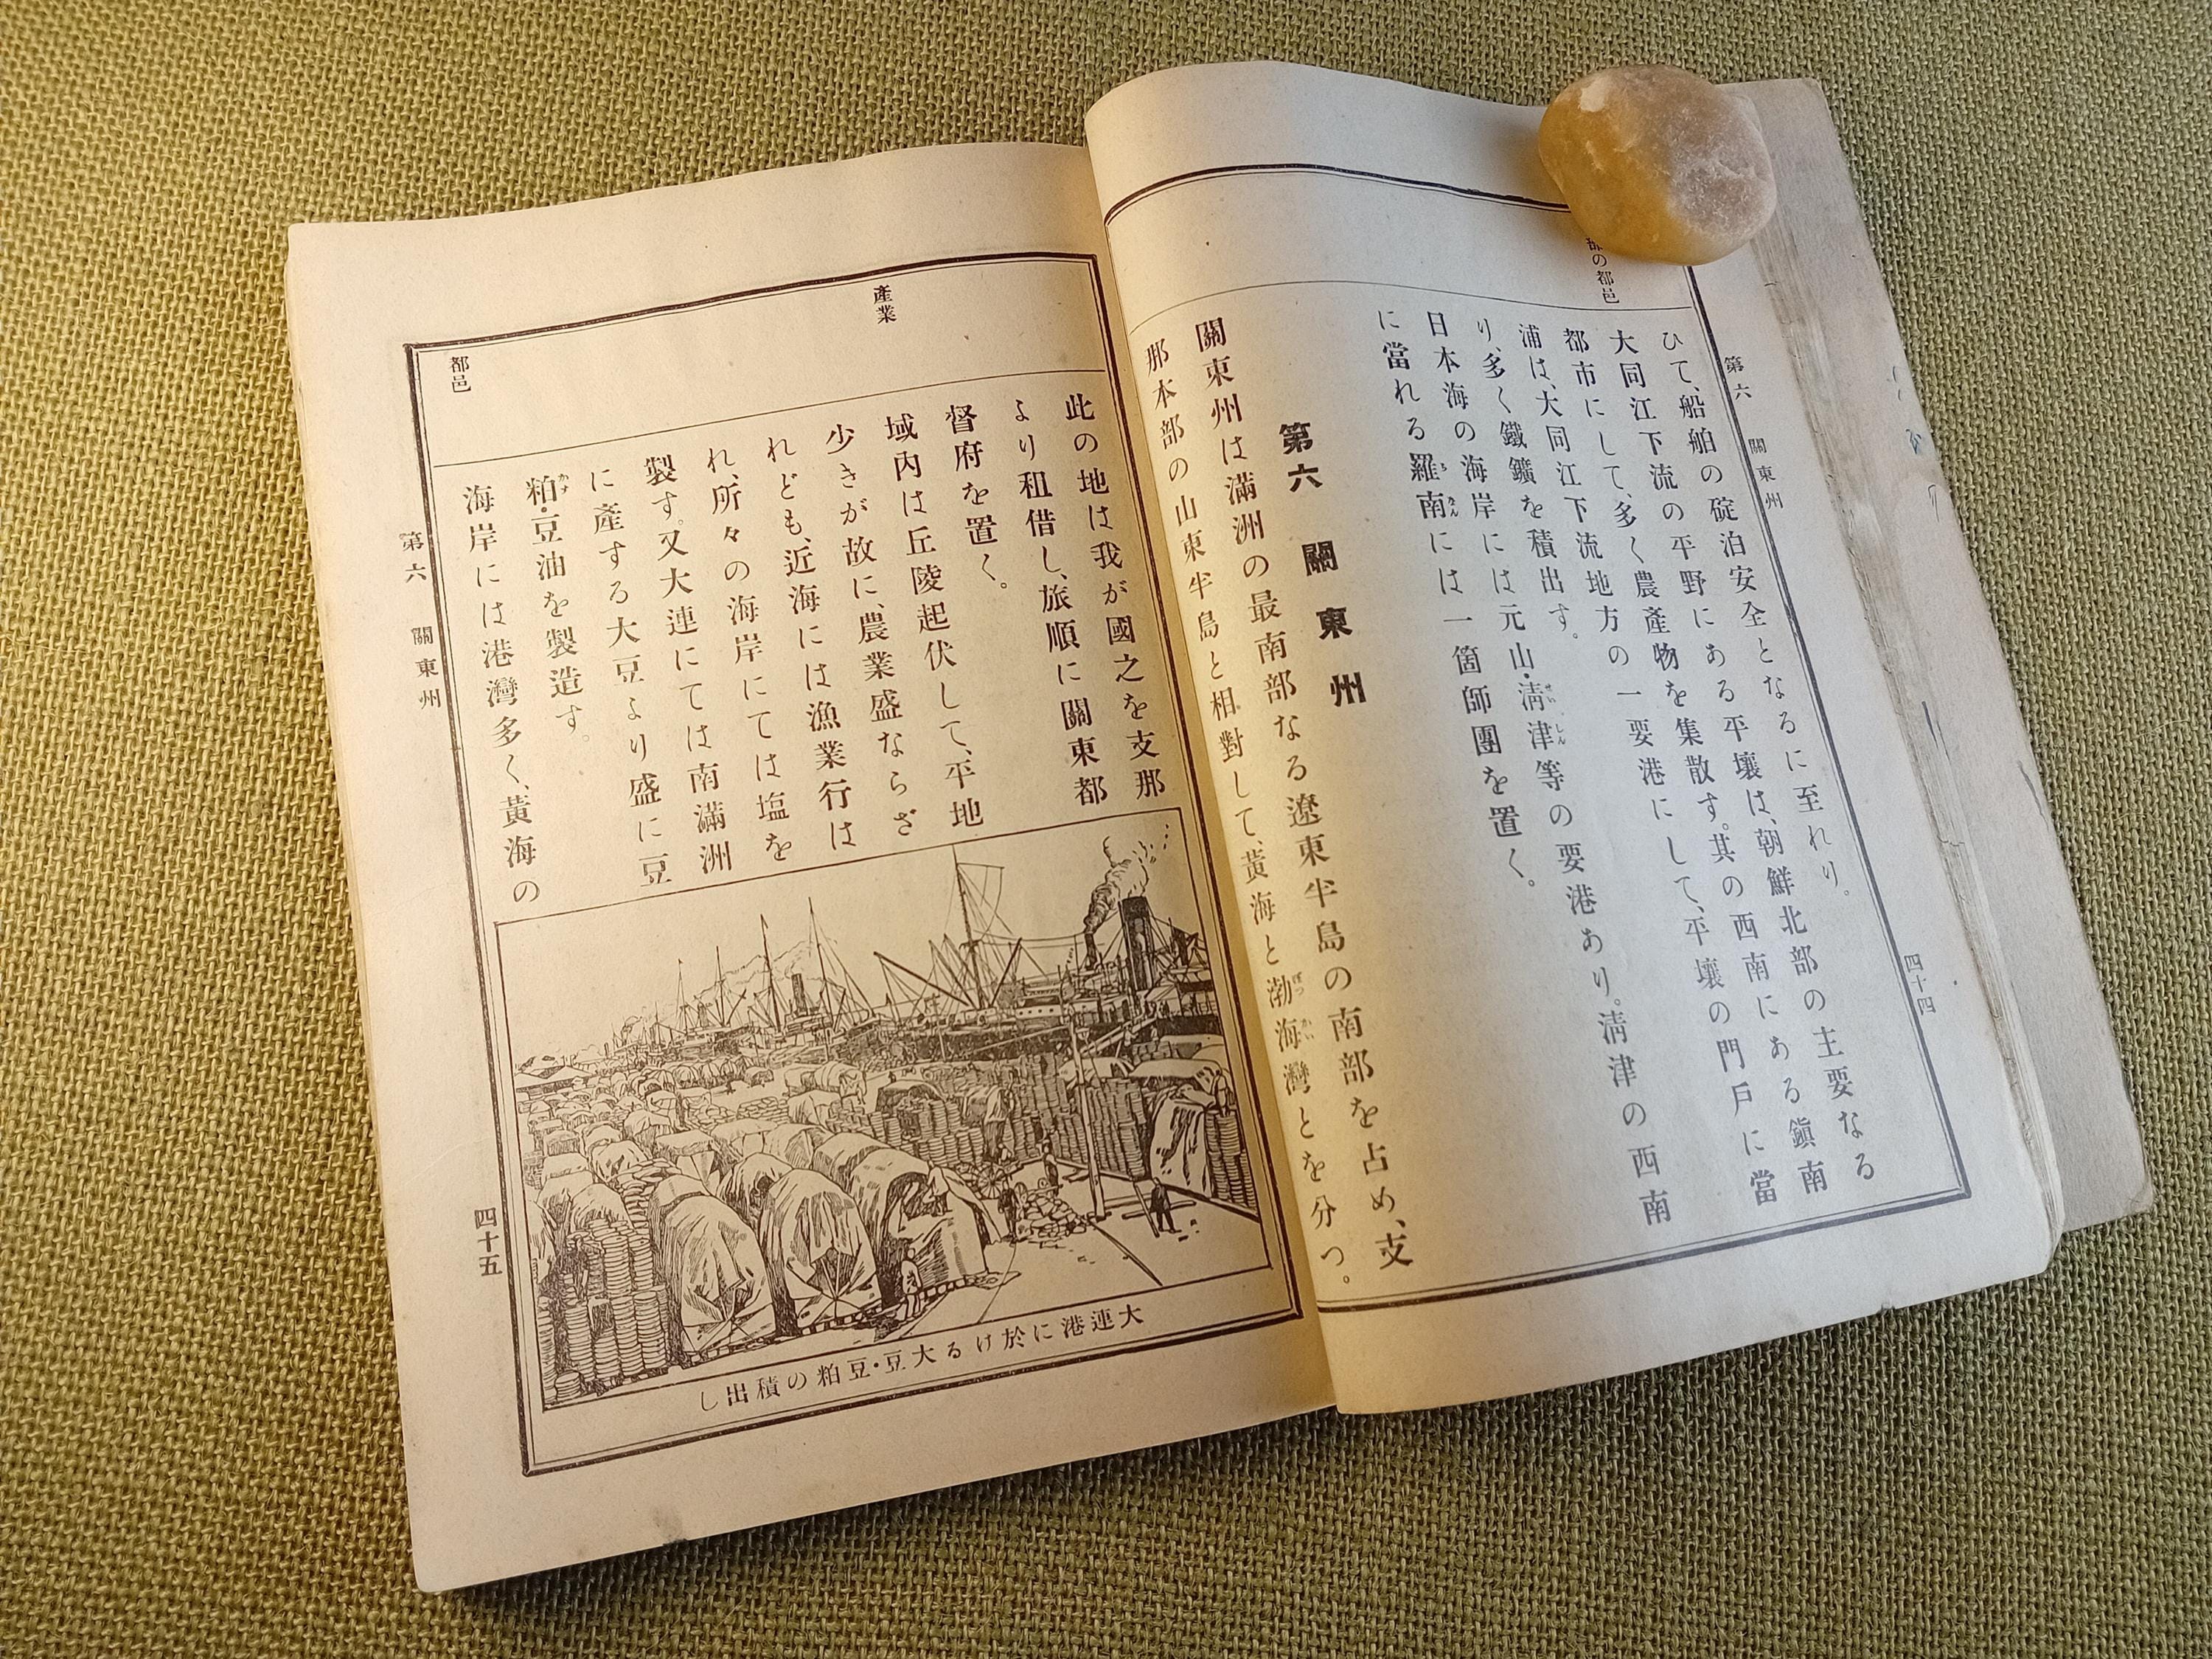 第六 關東州
四十四
の都邑
ひて、船舶の碇泊安全となるに至れり。
大同江下流の平野にある平壤は、朝鮮北部の主要なる
都市にして、多く農產物を集散す。其の西南にある鎭南
浦は、大同江下流地方の一要港にして、平壤の門戶に當
り、多く鐵鑛を積出す。
日本海の海岸には元山・淸津等の要港あり。淸津の西南
に當れる羅南には一箇師團を置く。
第六 關東州
關東州は滿洲の最南部なる遼東半島の南部を占め、支
那本部の山東半島と相對して、黃海と渤海灣とを分つ。
此の地は我が國之を支那
より租借し、旅順に關東都
督府を置く。
產業
域內は丘陵起伏して、平地
少きが故に、農業盛ならざ
れども、近海には漁業行は
れ、所々の海岸にては塩を
製す。又大連にては南滿洲
に產する大豆より盛に豆
粕・豆油を製造す。
都邑
海岸には港灣多く、黃海の
大連港に於ける大豆・豆粕の積出し
第六 關東州
四十五